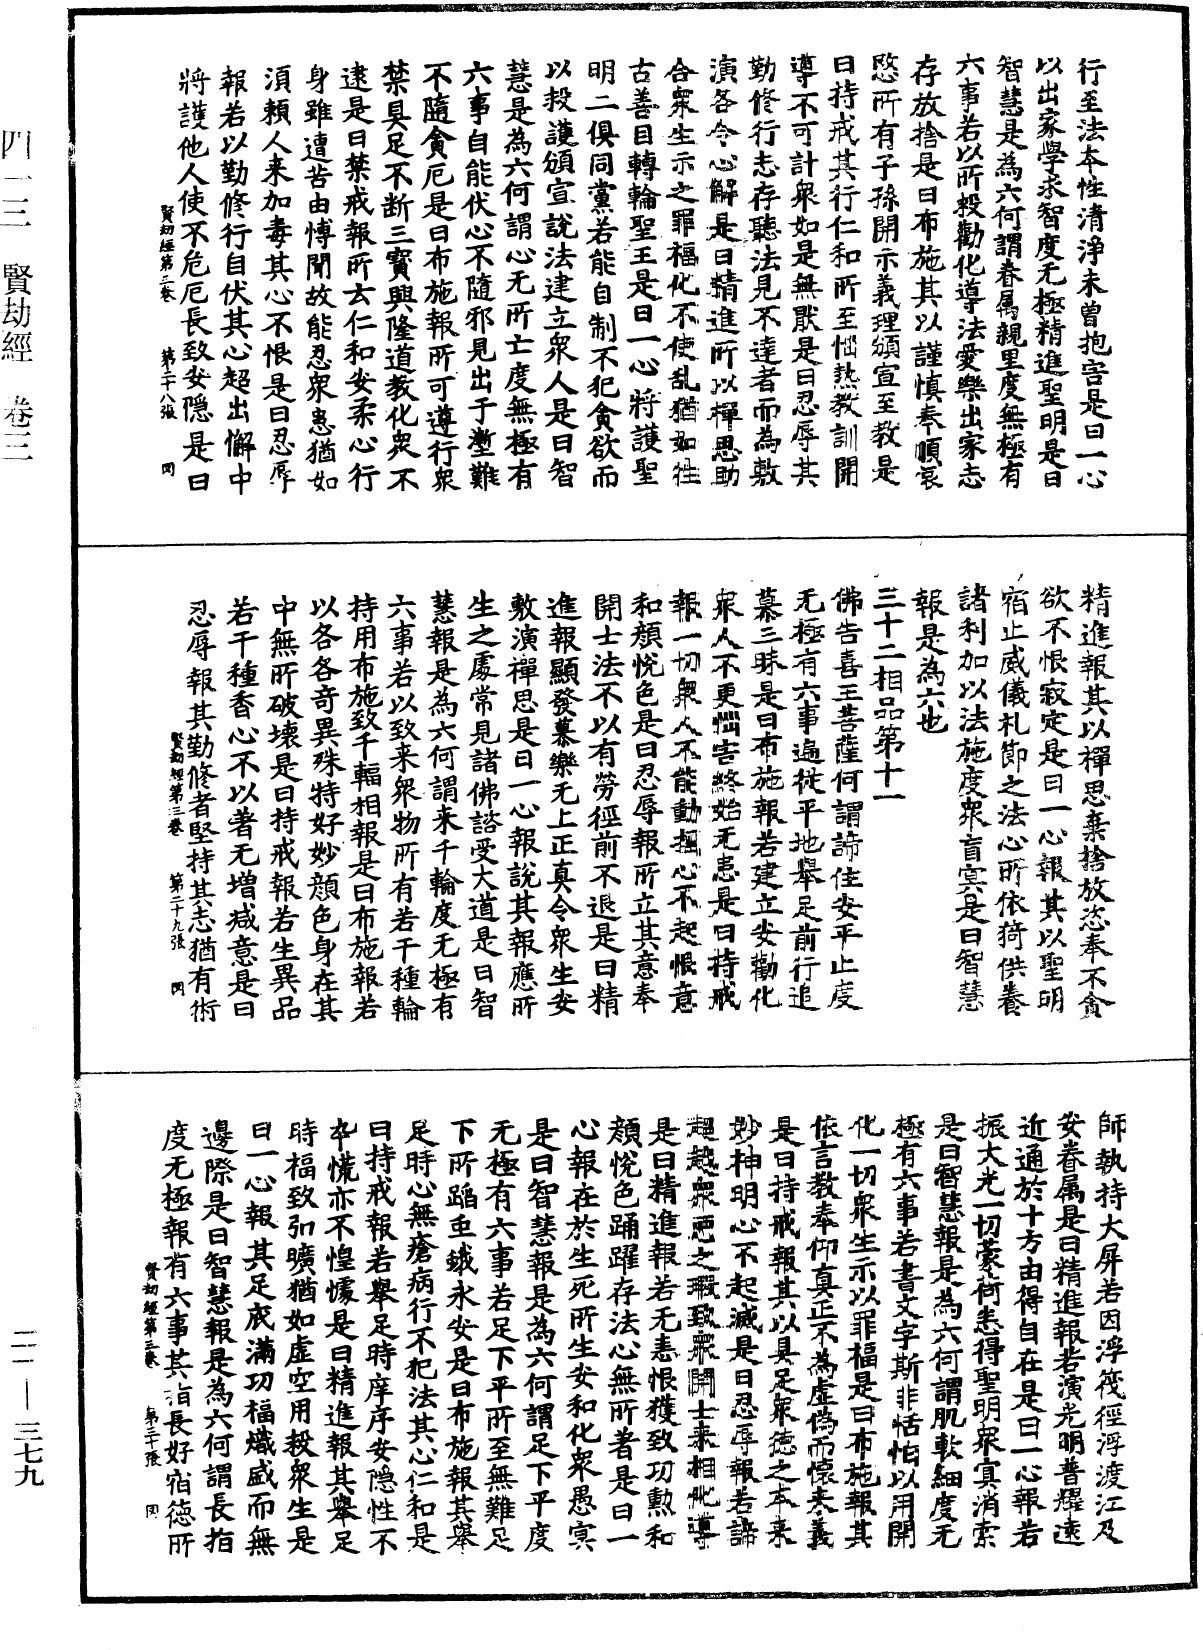 行至法本性清淨未曾抱害是曰一心
以出家學求智度无極精進聖明是曰
智慧是為六何謂眷属親里度無極有
六事若以所投勸化導法愛樂出家志
存放捨是曰布施其以謹慎奉順哀
愍所有子孫開示義理頒宣至教是
曰持戒其行仁和所至惱熱教訓開
導不可計衆如是無猒是曰忍辱其
勤修行志存聽法見不達者而為敷
演各令心解是曰精進所以禪思助
合衆生示之罪福化不使乱猶如往
古善目轉輪聖王是曰一心將護聖
明二俱同黨若能自制不犯貪欲而
以投護頒宣說法建立衆人是曰智
慧是為六何謂心无所亡度無極有
六事自能伏心不隨邪見出于壍難
不隨貪厄是曰布施報所可遵行衆
禁具足不断三寶興隆道教化衆不
逮是曰禁戒報所去仁和安柔心行
身雖遭苦由愽聞故能忍衆患猶如
湏賴人来加毒其心不恨是曰忍辱
報若以勤修行自伏其心超出懈中
將護他人使不危厄長致安隱是曰
賢劫經第三卷　第二十八張　罔
精進報其以禪思棄捨放恣奉不貪
欲不恨寂定是曰一心報其以聖明
宿止威儀礼節之法心所依猗供養
諸利加以法施度衆盲冥是曰智慧
報是為六也
三十二相品第十一
佛告喜王菩薩何謂諦住安平止度
无極有六事遍從平地舉足前行追
慕三昧是曰布施報若建立安勸化
衆人不更惱害終始无患是曰持戒
報一切衆人不能動揺心不起恨意
和顔悅色是曰忍辱報所立其意奉
開士法不以有勞徑前不退是曰精
進報顯發慕樂无上正真令衆生安
敷演禪思是曰一心報說其報應所
生之處常見諸佛諮受大道是曰智
慧報是為六何謂来千輪度无極有
六事若以致来衆物所有若干種輪
持用布施致千輻相報是曰布施報若
以各各奇異殊特好妙顔色身在其
中無所破壊是曰持戒報若生異品
若干種香心不以著无増减意是曰
忍辱報其勤修者堅持其志猶有術
賢劫經第三卷　第二十九張　罔
師執持大屏若因浮筏徑浮渡江及
安眷属是曰精進報若演光明普耀遠
近通於十方由得自在是曰一心報若
振大光一切蒙荷悉得聖明衆冥消索
是曰智慧報是為六何謂肌軟細度无
極有六事若書文字斯非恬怕以用開
化一切衆生示以罪福是曰布施報其
依言教奉仰真正不為虚偽而懐来義
是曰持戒報其以具足衆德之本来
妙神明心不起滅是曰忍辱報若諦
超越衆惡之瑕致衆開士来相化導
是曰精進報若无恚恨獲致功勲和
顔悅色踊躍存法心無所著是曰一
心報在於生死所生安和化衆愚冥
是曰智慧報是為六何謂足下平度
无極有六事若足下平所至無難足
下所蹈虫蛾永安是曰布施報其舉
足時心無瘡病行不犯法其心仁和是
曰持戒報若舉足時庠序安隱性不
卒慌亦不惶懅是曰精進報其舉足
時福致弘曠猶如虚空用投衆生是
曰一心報其足底滿功福熾盛而無
邊際是曰智慧報是為六何謂長指
度无極報有六事其指長好宿徳所
賢劫經第三卷　第三十張　罔
四一三　賢劫經　卷三
二一—三七九